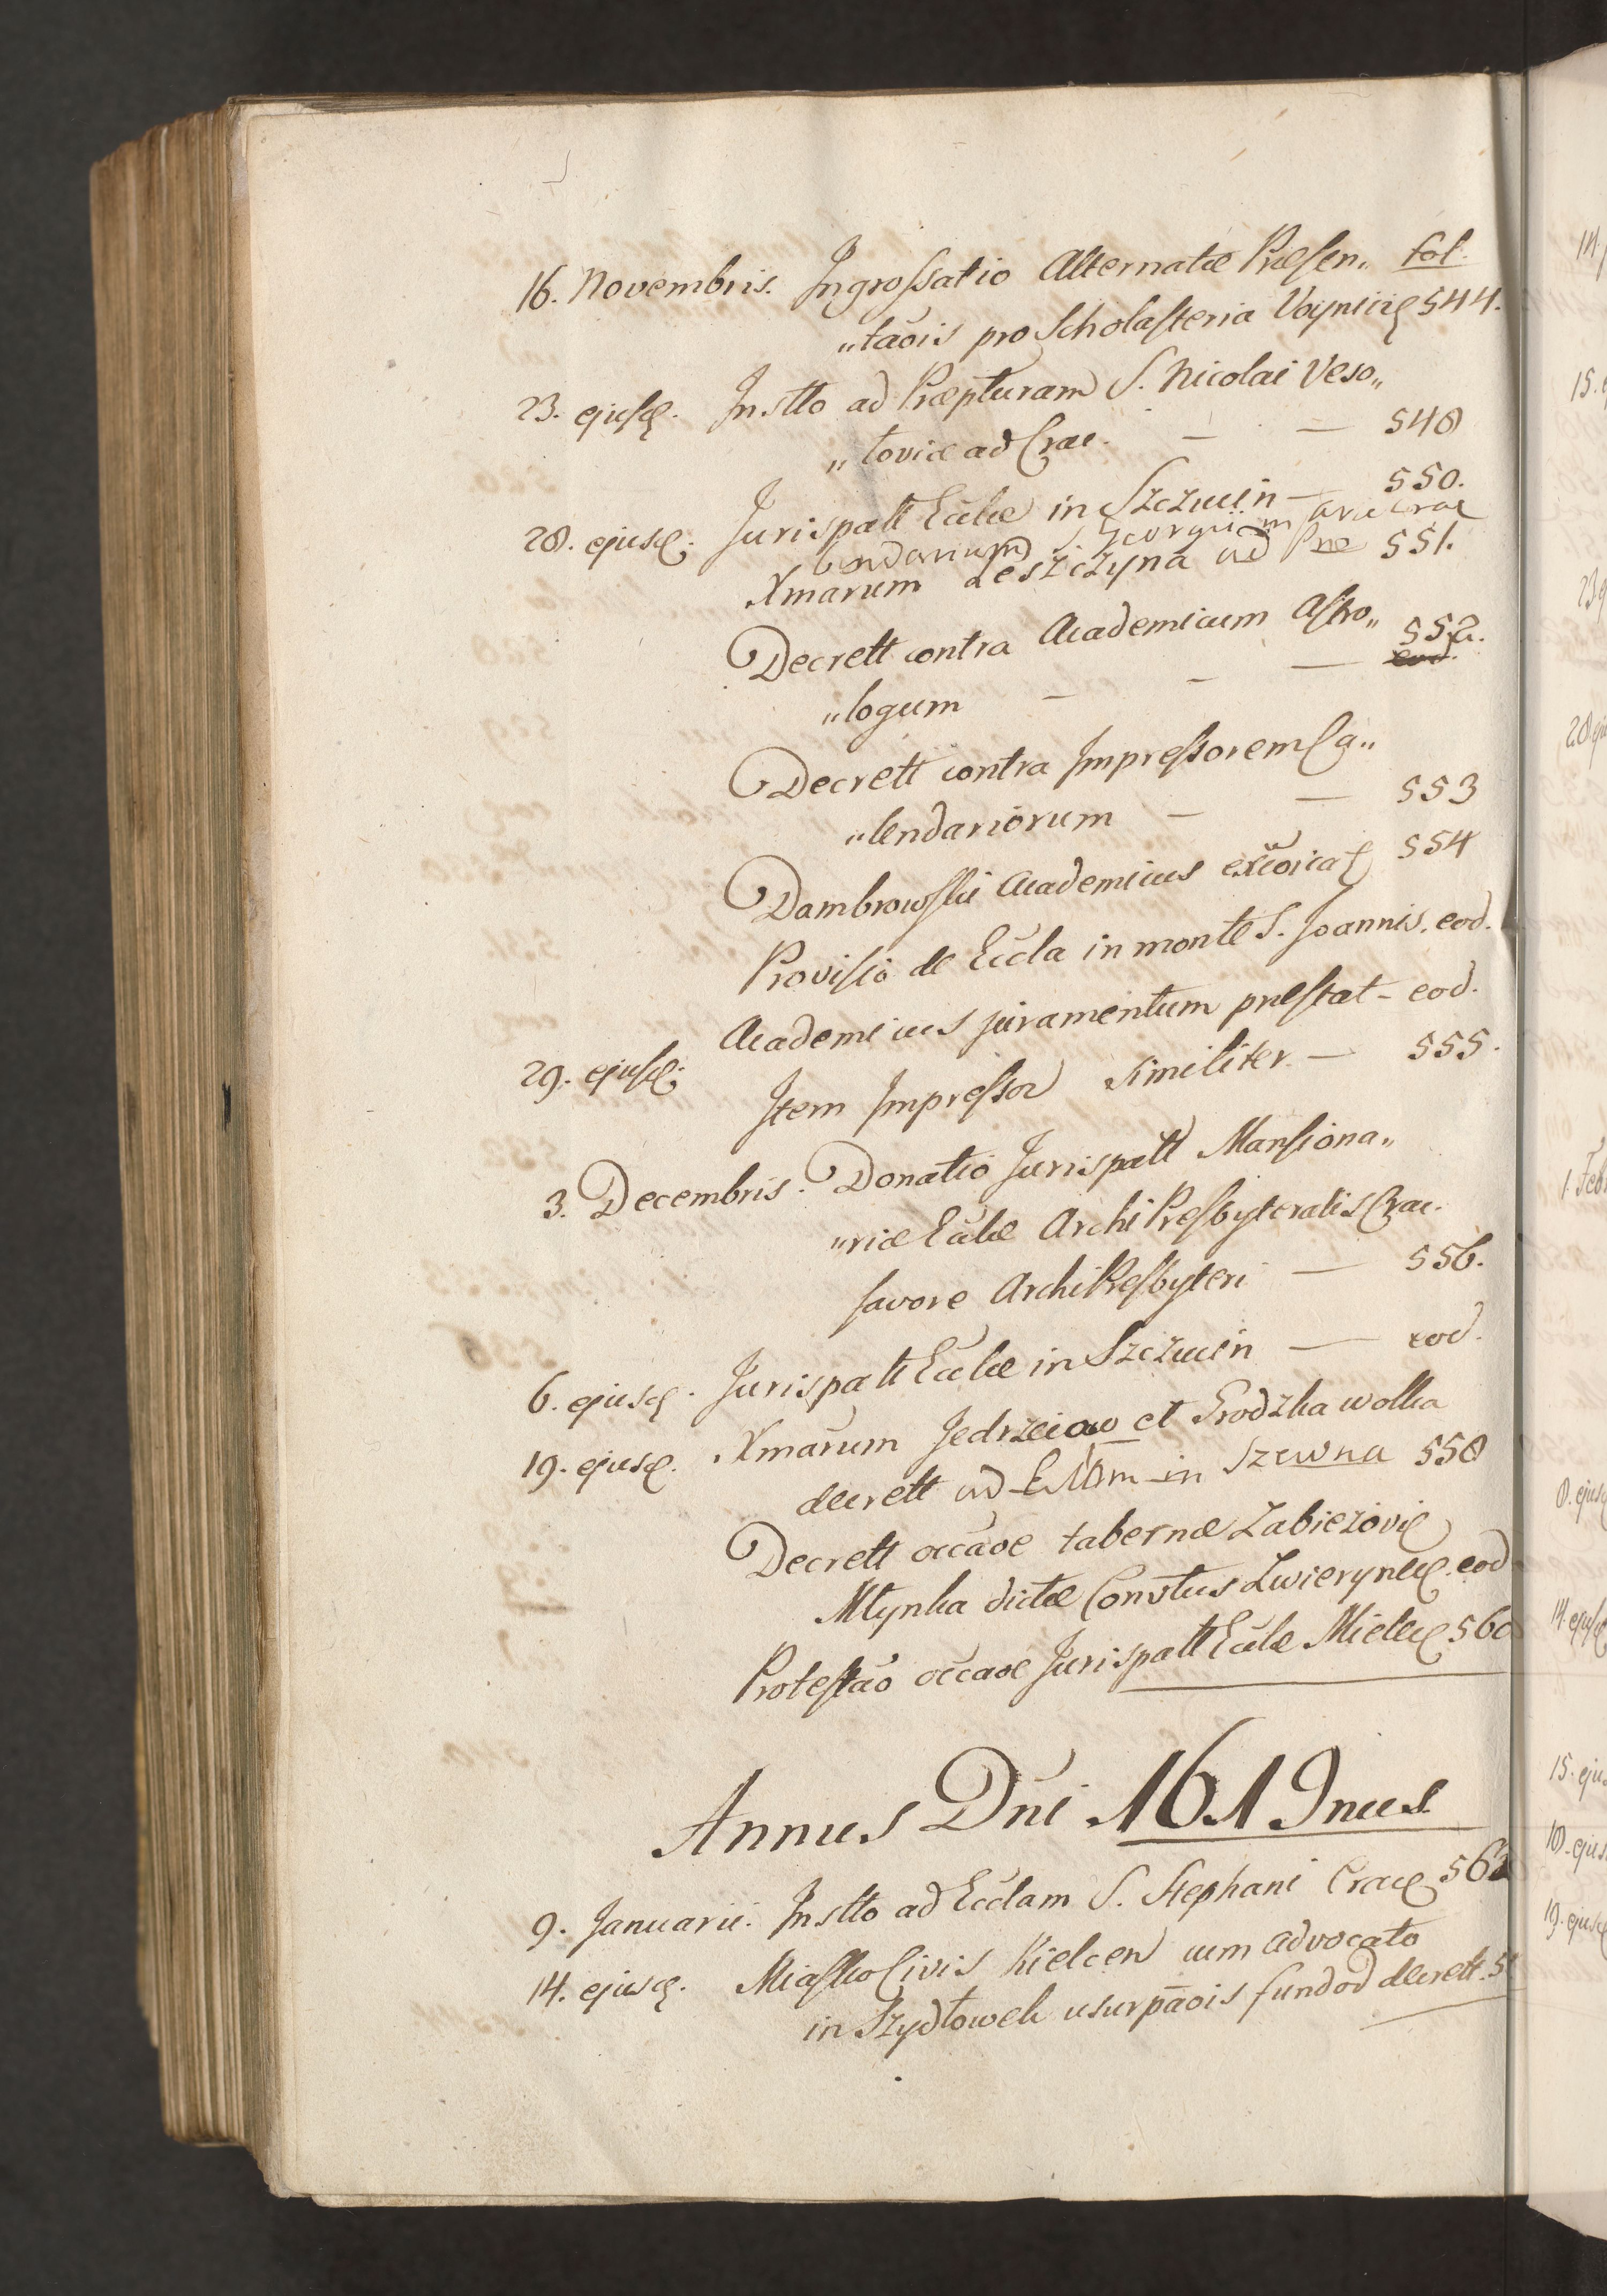 16. Novembris. Ingroſsatio Alternatæ Præſen„ fol.
„tãois pro Scholaſteria Voynicię 544.
23. ejuſdę. Instto ad Præpturam S. Nicolai Veso„
„loviæ ad Crac. — — 548
28. ejusdę. Jurispatt Eccłæ in Szczucin — 550.
bendarium S Georgii in Arce Crac
Xmarum Leszczyna ad Præ 551.
Decrett contra Academicum Aſtro„ 552.
„logum — — — eod.
Decrett contra Impreſsorem Ca„
„lendariorum — — 553
Dambrowſki Academicus exc̃oicatę 554
Proviſio de Eccla in monte S. Joannis. eod.
29. ejuſdę. Academicus juramentum præſtat – eod.
Item Impreſsor similiter — 555.
3. Decembris. Donatio Jurispatt Manſiona„
„riæ Eccłæ ArchiPreſbyteralis Crac.
favore ArchiPreſbyteri — 556.
6. ejusdę. Jurispatt Eccłæ in Szczucin — eod.
19. ejusdę. Xmarum Jedrzeiow et Brodzka wolka
decrett ad Ecclam in Szewna 558
Decrett occãoe tabernæ Zabiezovię
Młynka dictæ Convtus Zwierynecę. eod
Proteſtão occãoe Jurispatt Eccłæ Mielecę 560
Annus Dñi 1619nus
9. Januarii. Instto ad Ecclam S. Stephani Cracę 562
14. ejusdę. Miaſtko Civis Kielcen cum advocato
in Szydłowek usurpãois fundod decrett. 5